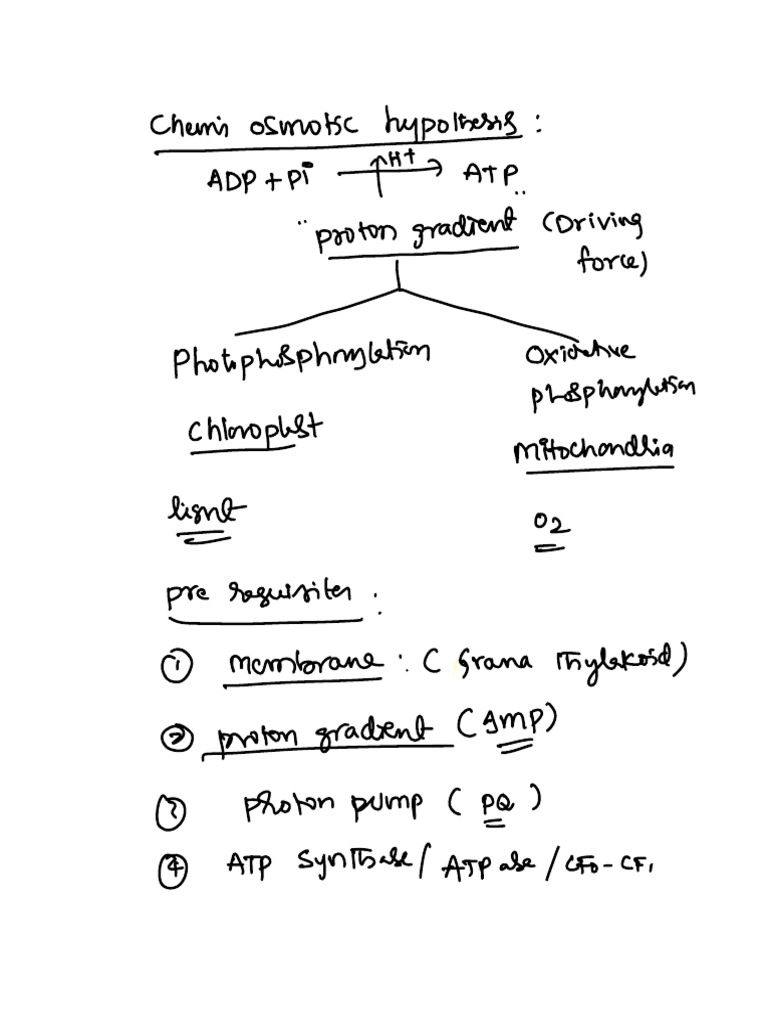 Chemi osmotic hypothesis :
ADP + Pi H+ ATP
"proton gradient" (Driving
force)
Photophosphorylation
Oxidative
phosphorylation
Chloroplast
Mitochondria
light
O2
pre requisites :
① membrane : ( Grana Thylakoid )
② proton gradient ( Imp )
③ proton pump ( PQ )
④ ATP Synthase / ATPase / CF0 - CF1